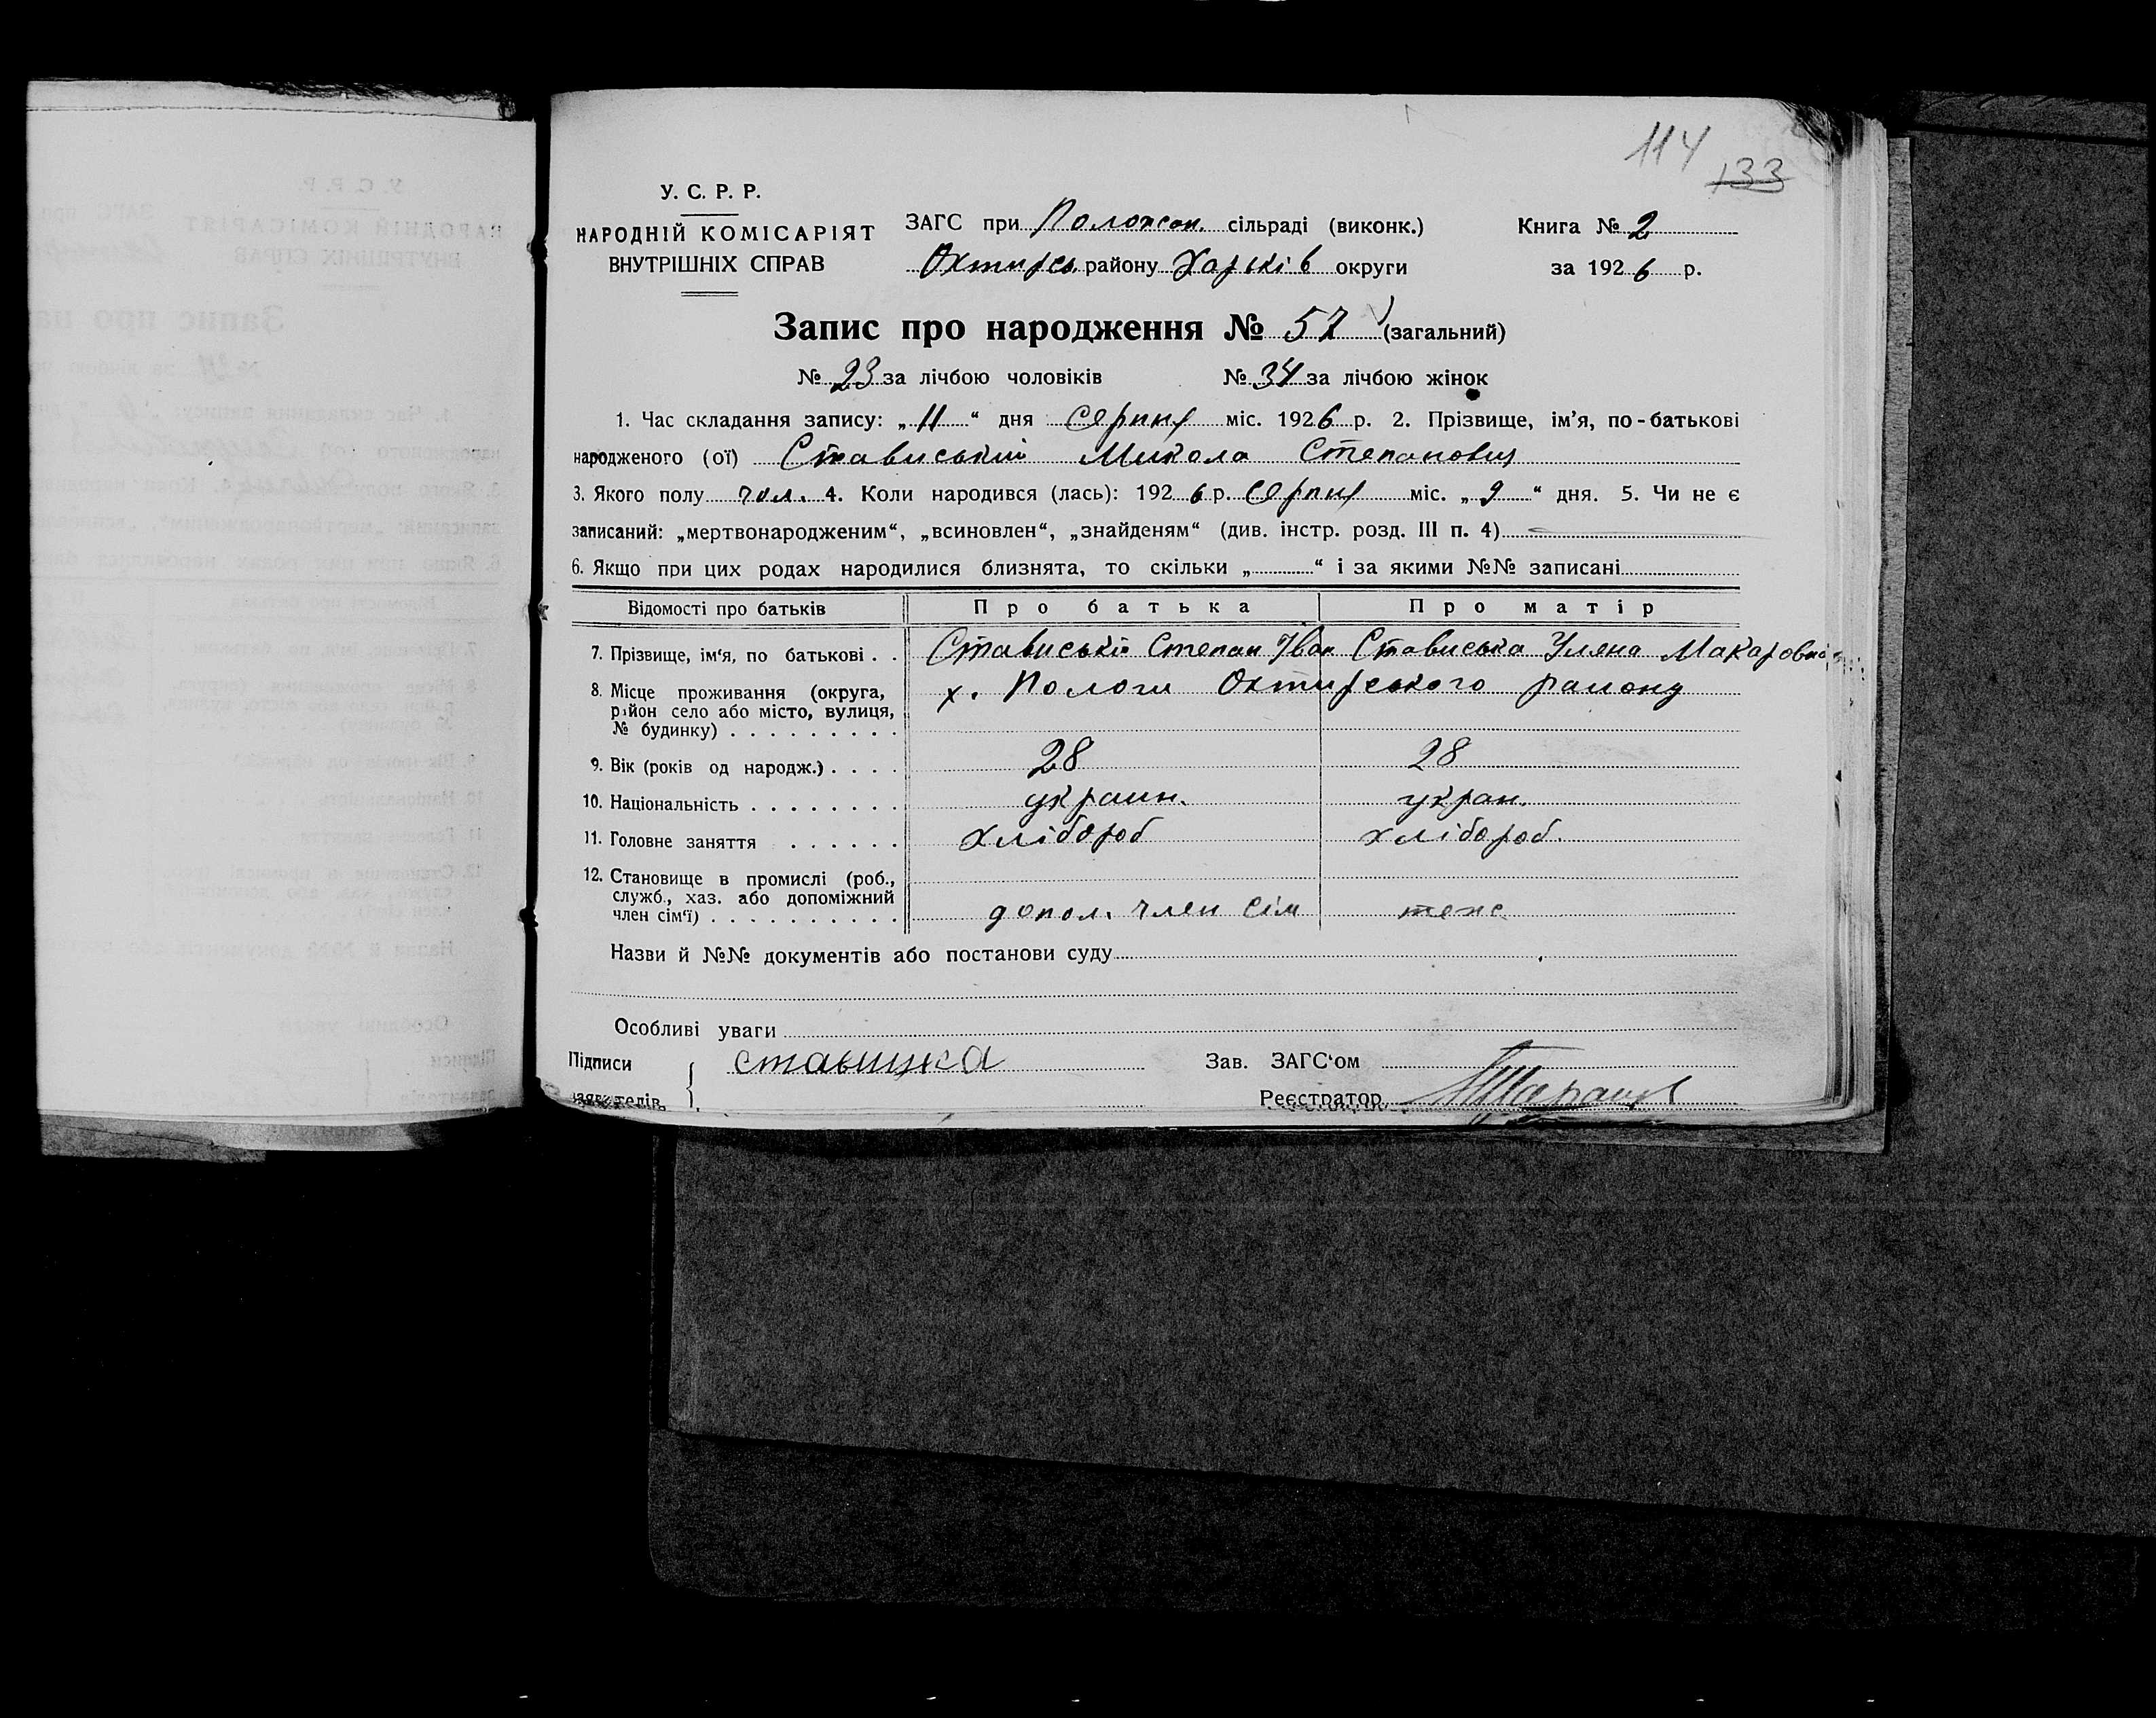 114
133
У. С. Р. Р.
НАРОДНІЙ КОМІСАРІЯТ
ВНУТРІШНІХ СПРАВ
ЗАГС при Положан. сільраді (виконк.)
Охтирсь. району Харьків округи
Книга № 2
за 1926 р.
Запис про народження № 57 (загальний)
№ 23 за лічбою чоловіків № 34 за лічбою жінок
1. Час складання запису: „ 11 “ дня Серпня міс. 1926 р. 2. Прізвище, ім’я, по-батькові
народженого (ої) Стависький Микола Степанович
3. Якого полу чол. 4. Коли народився (лась): 1926 р. Серпня міс. „ 9 “ дня. 5. Чи не є
записаний: „мертвонародженим“, „всиновлен“, „знайденям“ (див. інстр. розд. III п. 4)
6. Якщо при цих родах народилися близнята, то скільки „ “ і за якими №№ записані
Відомості про батьків Про батька Про матір
7. Прізвище, ім‘я, по батькові . . Ставиській Степан Іван Стависька Уляна Макаровна
8. Місце проживання (округа, х. Пологи Охтирського району
район село або місто, вулиця,
№ будинку) . . . . . . . . .
9. Вік (років од народж.) . . . . 28 28
10. Національність . . . . . . . . украин. укран.
11. Головне заняття . . . . . . хлібороб хлібороб.
12. Становище в промислі (роб.,
служб., хаз. або допоміжний
член сім‘ї) . . . . . . . . . . допол. член сім теже
Назви й №№ документів або постанови суду
Особливі уваги
Підписи ставицка Зав. ЗАГС‘ом
заявителів Реєстратор